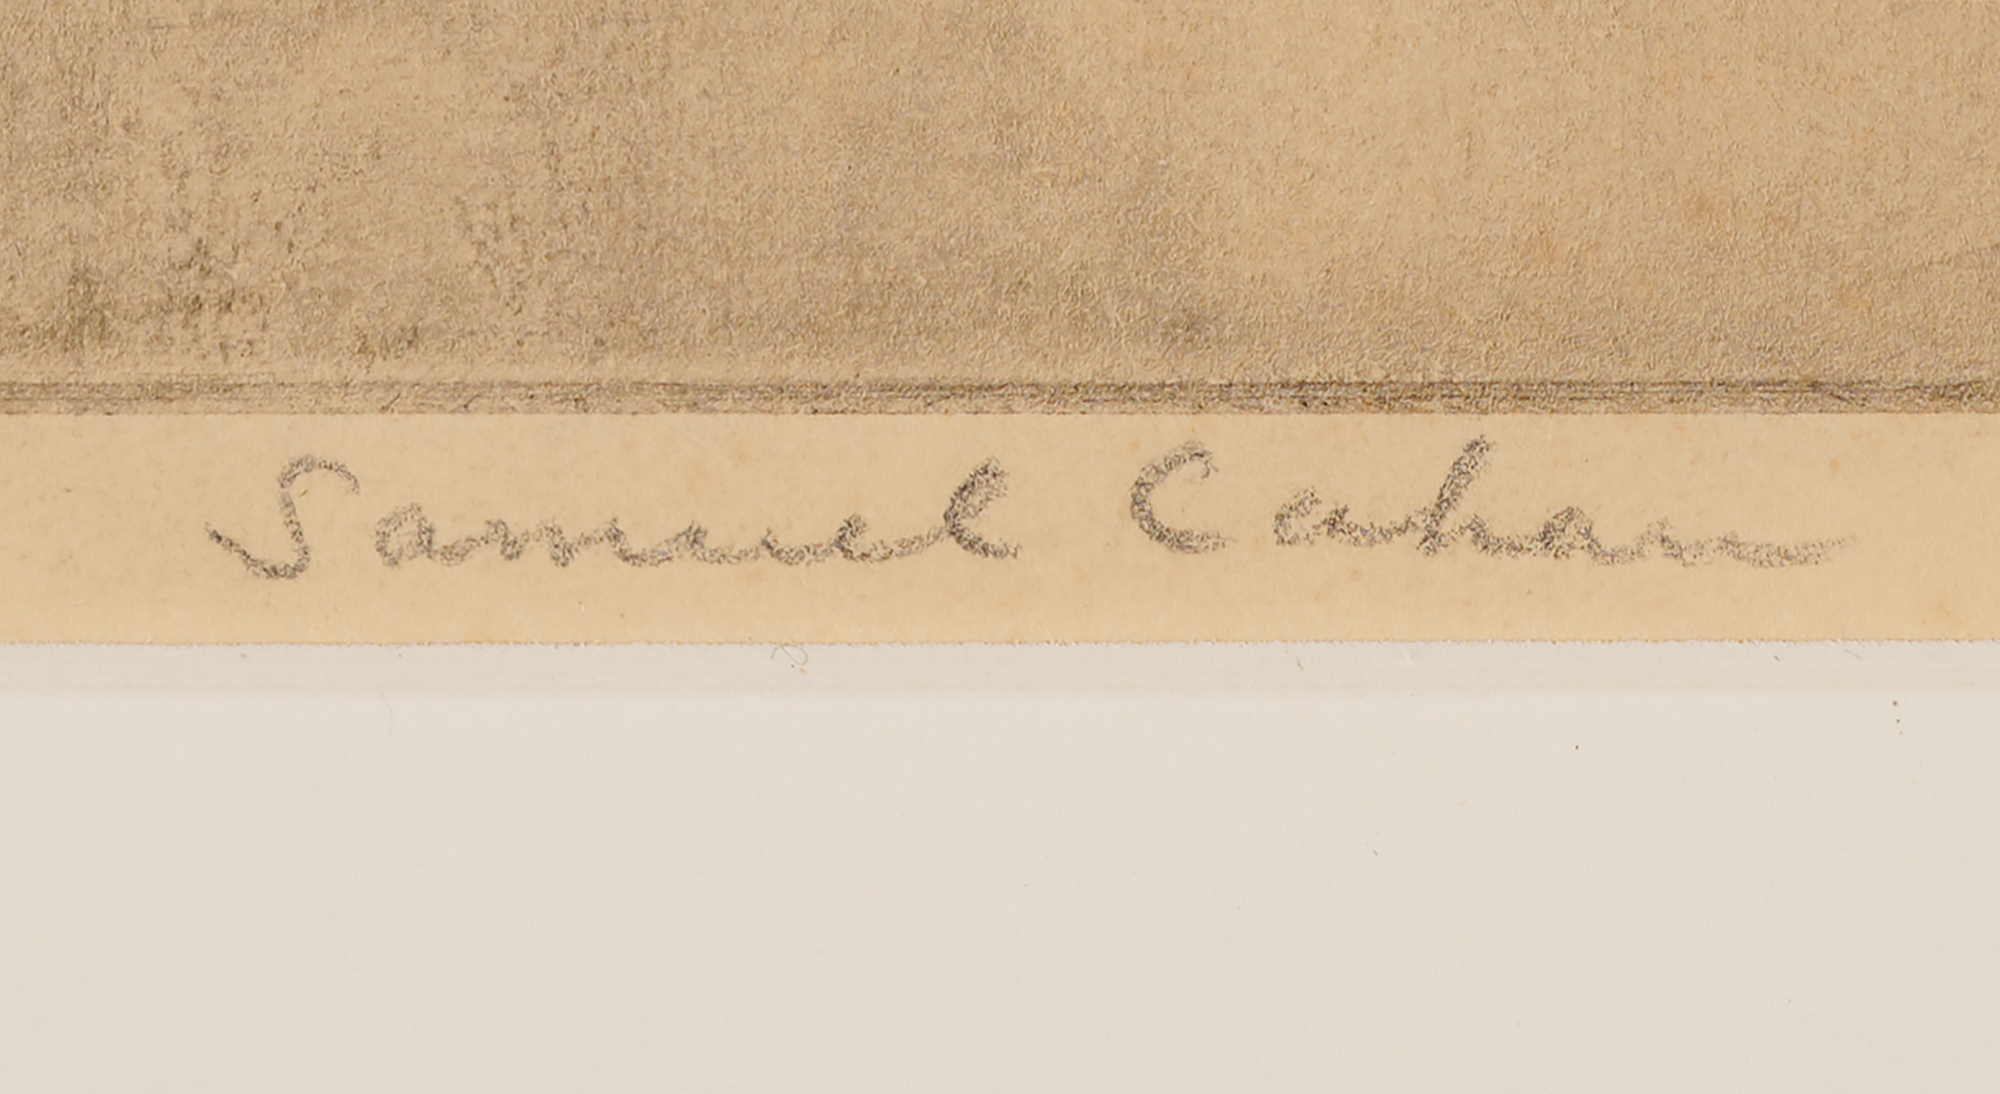 Samuel Cahan